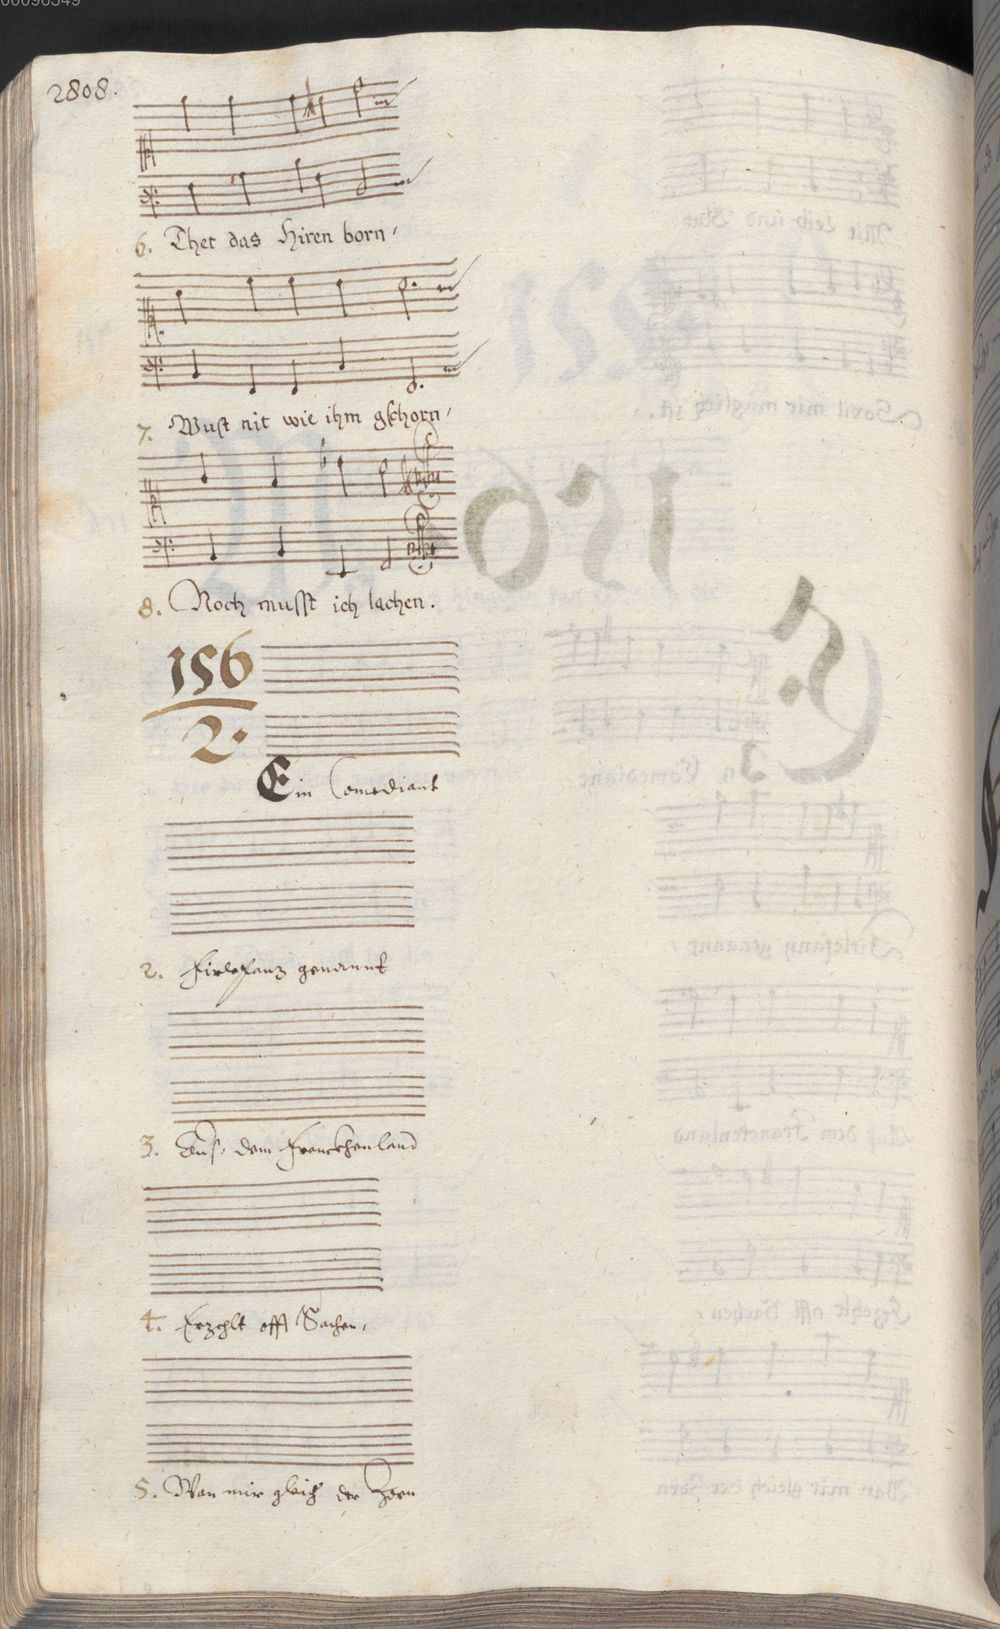 00096349
2808.
6. Thet das Hiren born,
7. Wust nit wie ihm gschorn,
8. Noch musst ich lachen.
156
2.
Ein Comediant
2. Firlefanz genannt
3. Aus dem Franckhenland
4. Erzehlt offt Sachen,
5. Wan mir gleich der Zorn